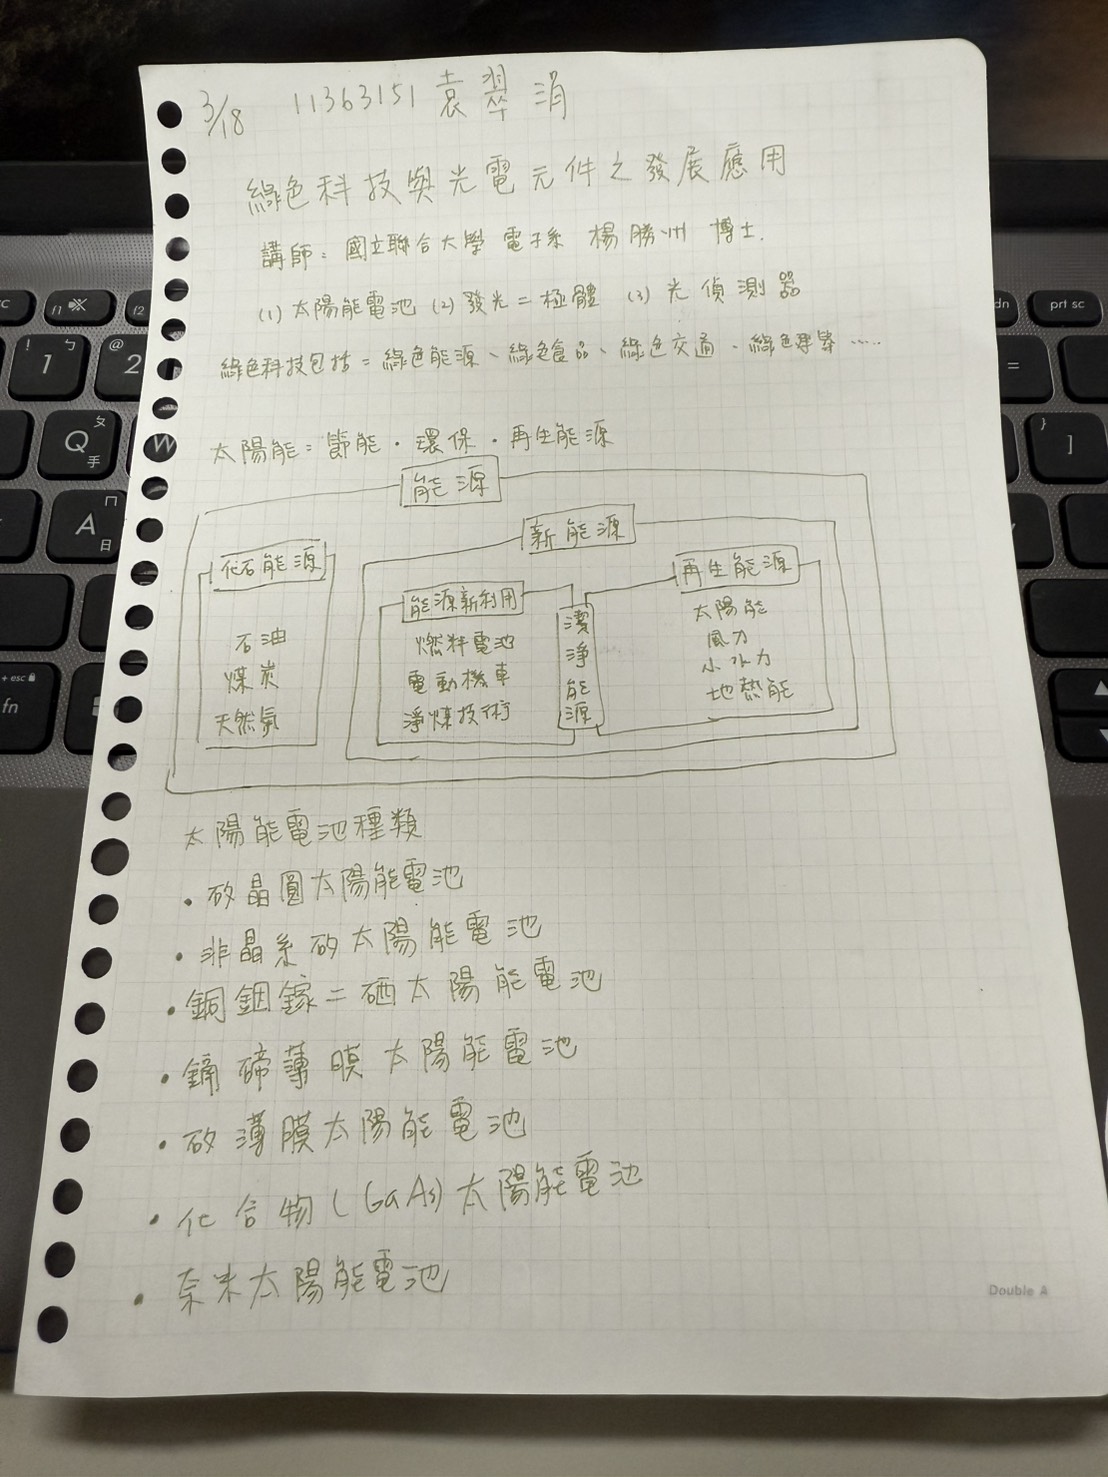 3/18 11363151 袁翠涓
綠色科技與光電元件之發展應用
講師：國立聯合大學 電子系 楊勝州 博士.
(1) 太陽能電池 (2) 發光二極體 (3) 光偵測器
綠色科技包括：綠色能源、綠色食品、綠色交通、綠色建築……
太陽能：節能．環保．再生能源
能源
新能源
化石能源
再生能源
能源新利用
潔淨能源
石油
煤炭
天然氣
燃料電池
電動機車
淨煤技術
太陽能
風力
小水力
地熱能
太陽能電池種類
・矽晶圓太陽能電池
・非晶系矽太陽能電池
・銅銦鎵二硒太陽能電池
・鎘碲薄膜太陽能電池
・矽薄膜太陽能電池
・化合物(GaAs)太陽能電池
・奈米太陽能電池
Double A
prt sc
f1
f2
1 ㄅ
@ 2
Q ㄆ 手
W
A ㄇ 日
+ esc
fn
=
} ]